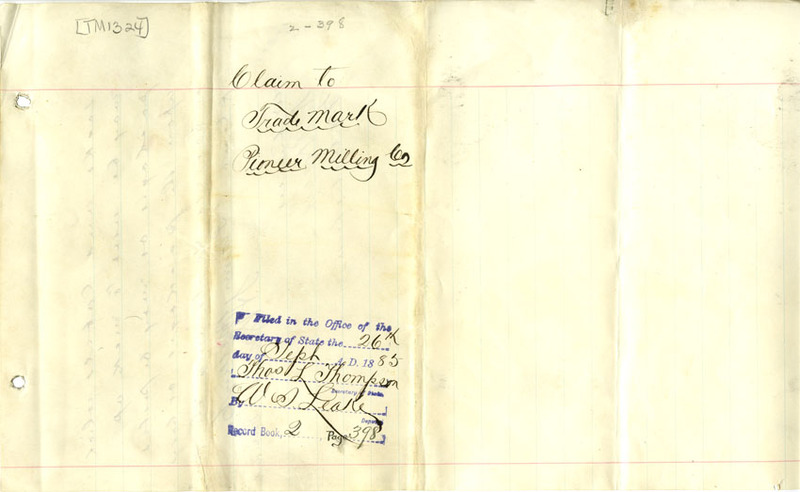 [TM1324]
2-398
Claim to
Trade Mark
Pioneer Milling Co
Filed in the Office of the
Secretary of State the 26th
day of Sept A. D. 1885
Thos L Thompson
Secretary of State.
By W S Leake
Deputy
Record Book, 2, Page 398